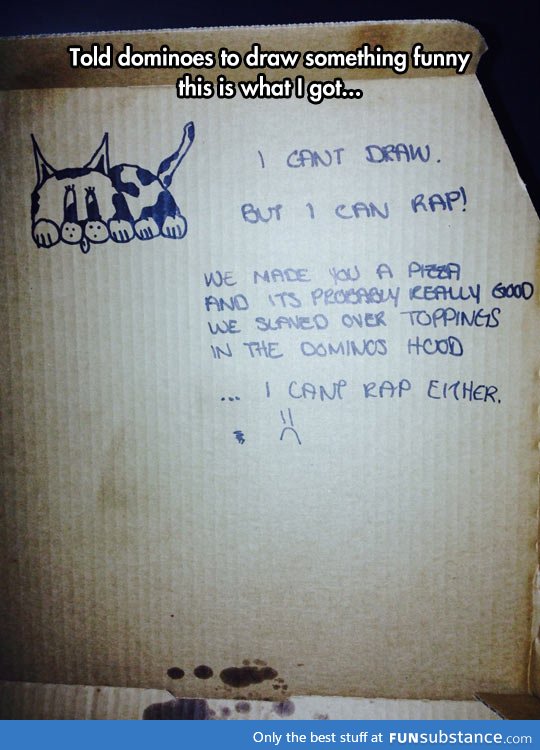 Told dominoes to draw something funny
this is what I got...
I CANT DRAW.
BUT I CAN RAP!
WE MADE YOU A PIZZA
AND ITS PROBABLY REALLY GOOD
WE SLAVED OVER TOPPINGS
IN THE DOMINOS HOOD
... I CANT RAP EITHER.
Only the best stuff at FUNsubstance.com